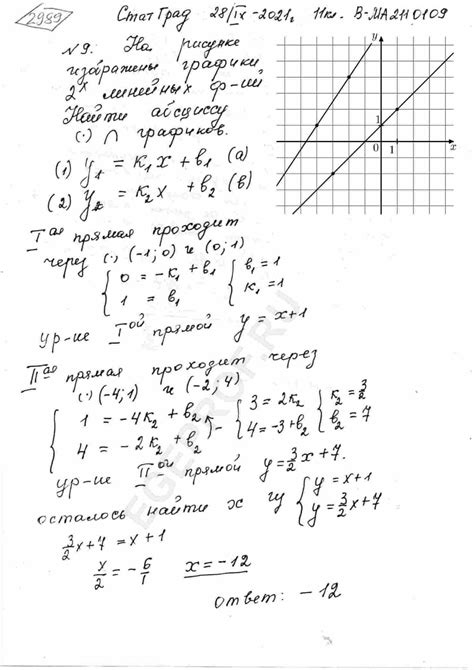 2989
СтатГрад 28/IX-2021г. 11кл. В-МА2110109
N9. На рисунке
изображены графики
2х линейных ф-ий
Найти абсциссу
(·) ∩ графиков.
(1) y₁ = k₁x + b₁ (a)
(2) y₂ = k₂x + b₂ (b)
Iая прямая проходит
через (·) (-1; 0) и (0; 1)
{ 0 = -k₁ + b₁ { b₁ = 1
1 = b₁ k₁ = 1
ур-ие Iой прямой y = x+1
IIая прямая проходит через
(·) (-4; 1) и (-2; 4)
{ 1 = -4k₂ + b₂ - { 3 = 2k₂ { k₂ = 3/2
4 = -2k₂ + b₂ 4 = -3 + b₂ b₂ = 7
ур-ие IIой прямой y = 3/2 x + 7.
осталось найти x из { y = x + 1
y = 3/2 x + 7
3/2 x + 7 = x + 1
x/2 = - 6/1 x = -12
ответ: -12
y
1
0
1
x
EGEPROF.RU